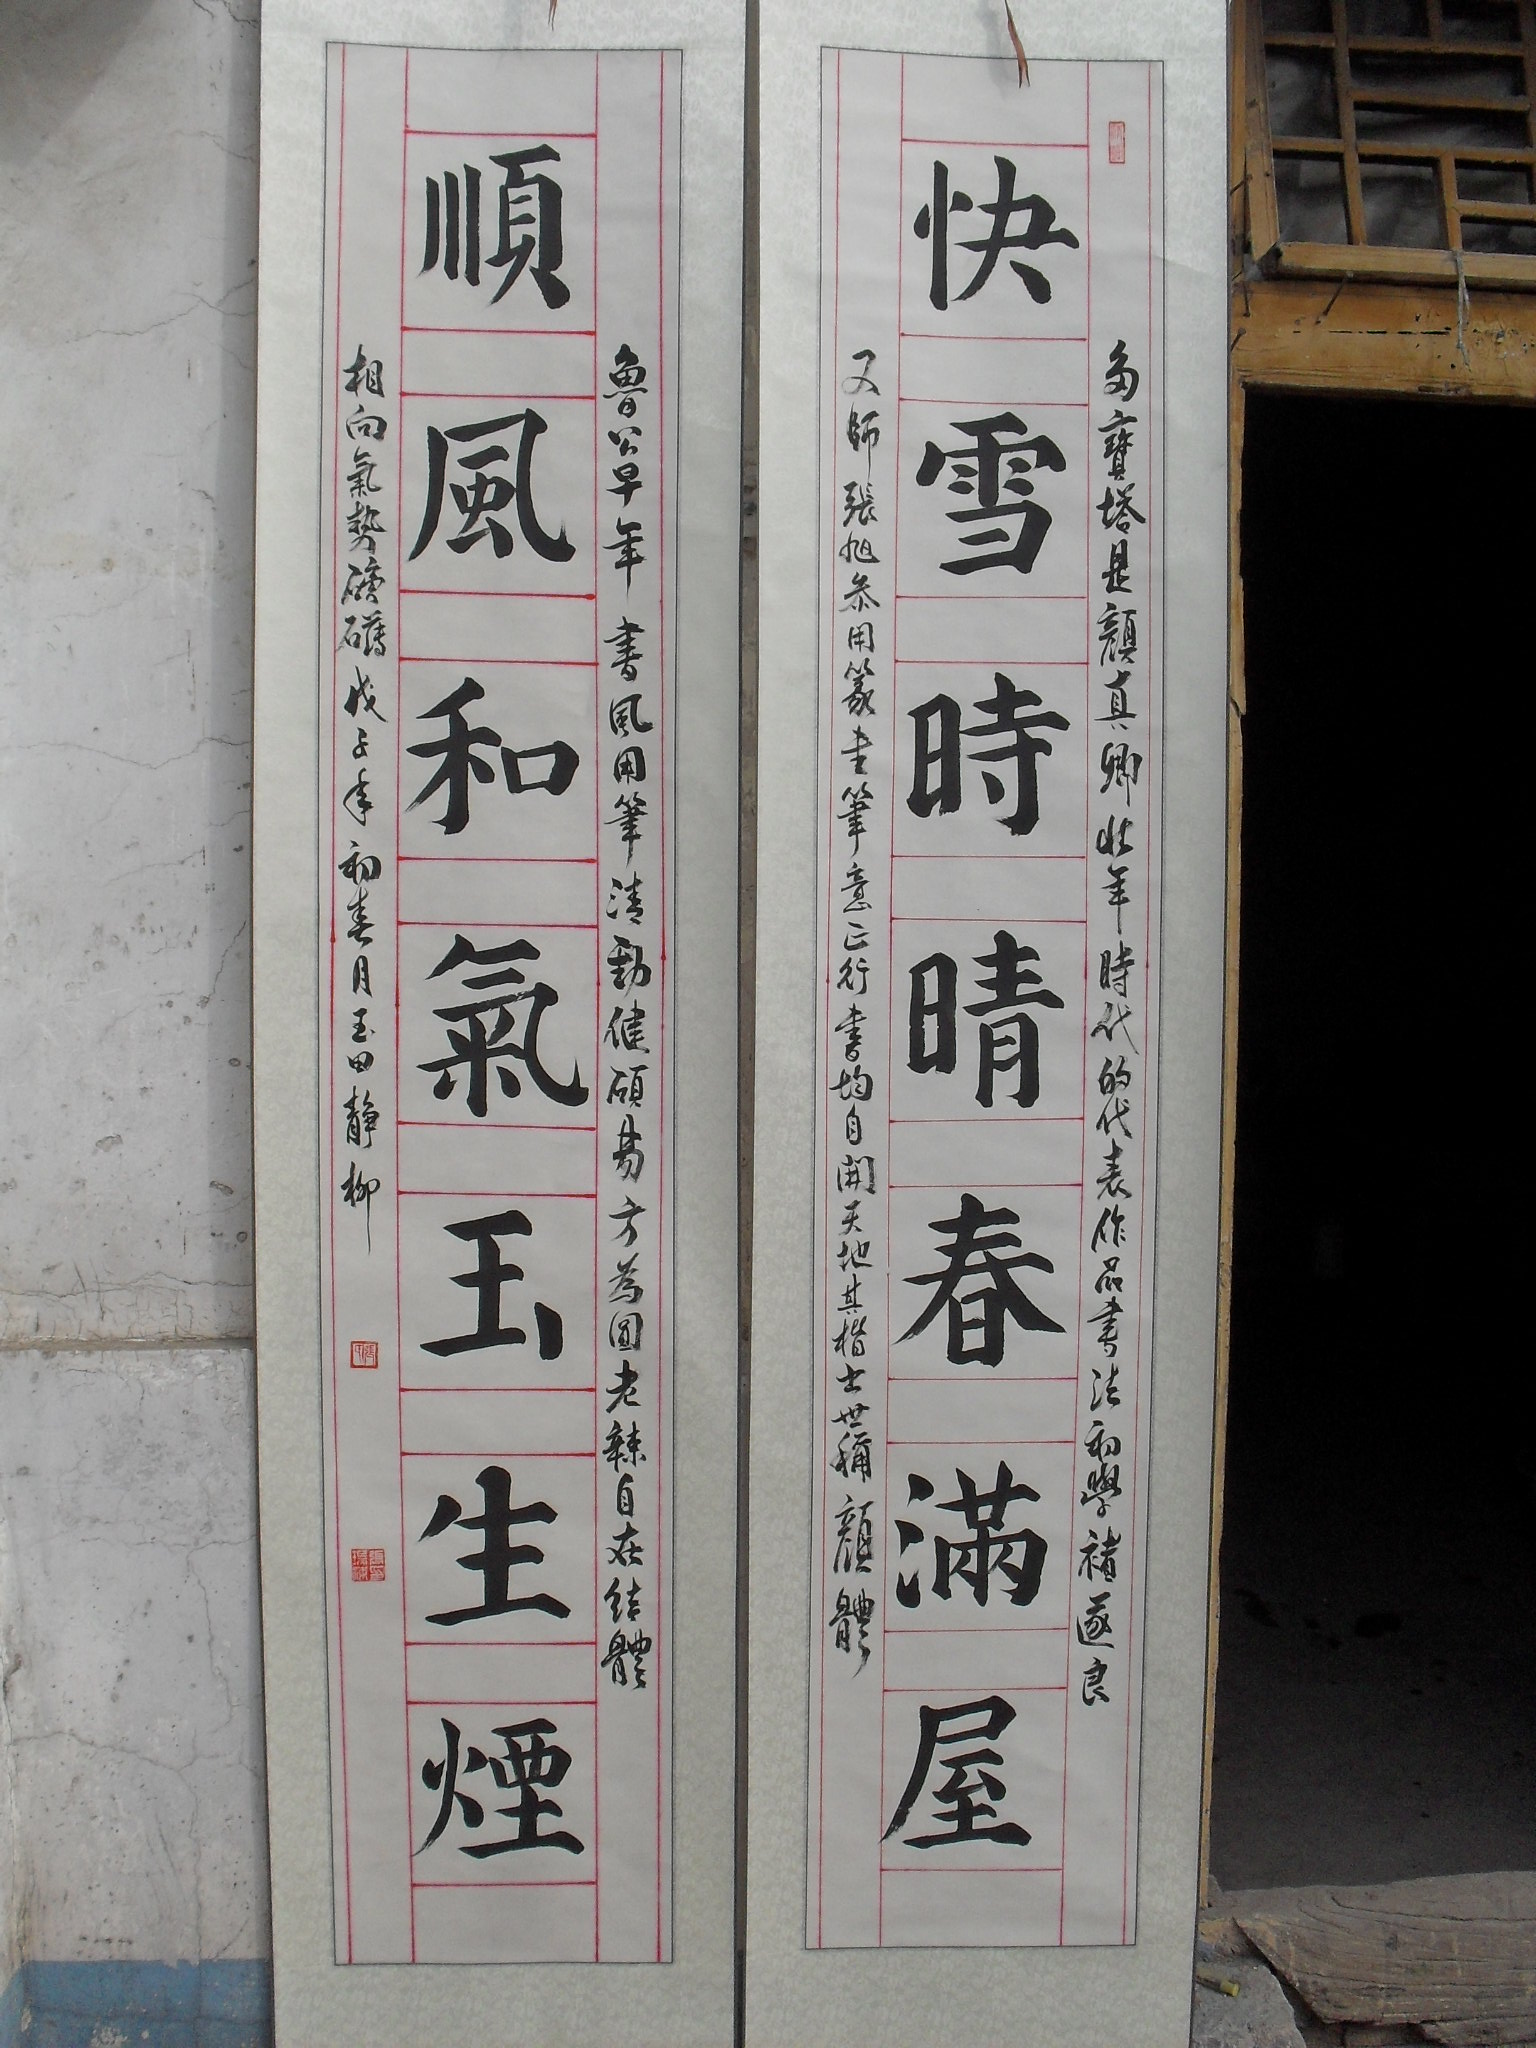 快雪時晴春滿屋
多寶塔是顏真卿壯年時代的代表作品書法初學褚遂良
又師張旭參用篆書筆意正行書均自開天地其楷書世稱顏體
順風和氣玉生煙
魯公早年書風用筆清勁健碩易方為圓老辣自在結體
相向氣勢磅礴戊子年初春月玉田靜柳